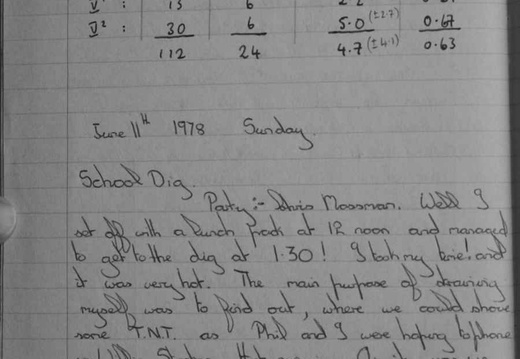 V² : 30 6 5.0 (±2.7) 0.67
112 24 4.7 (±4.1) 0.63
June 11th 1978 Sunday.
School Dig.
Party:- Chris Mossman. Well I
set off with a lunch pack at 12 noon and managed
to get to the dig at 1.30! I took my time! and
it was very hot. The main purpose of draining
myself was to find out, where we could shove
some T.N.T. as Phil and I were hoping to phone